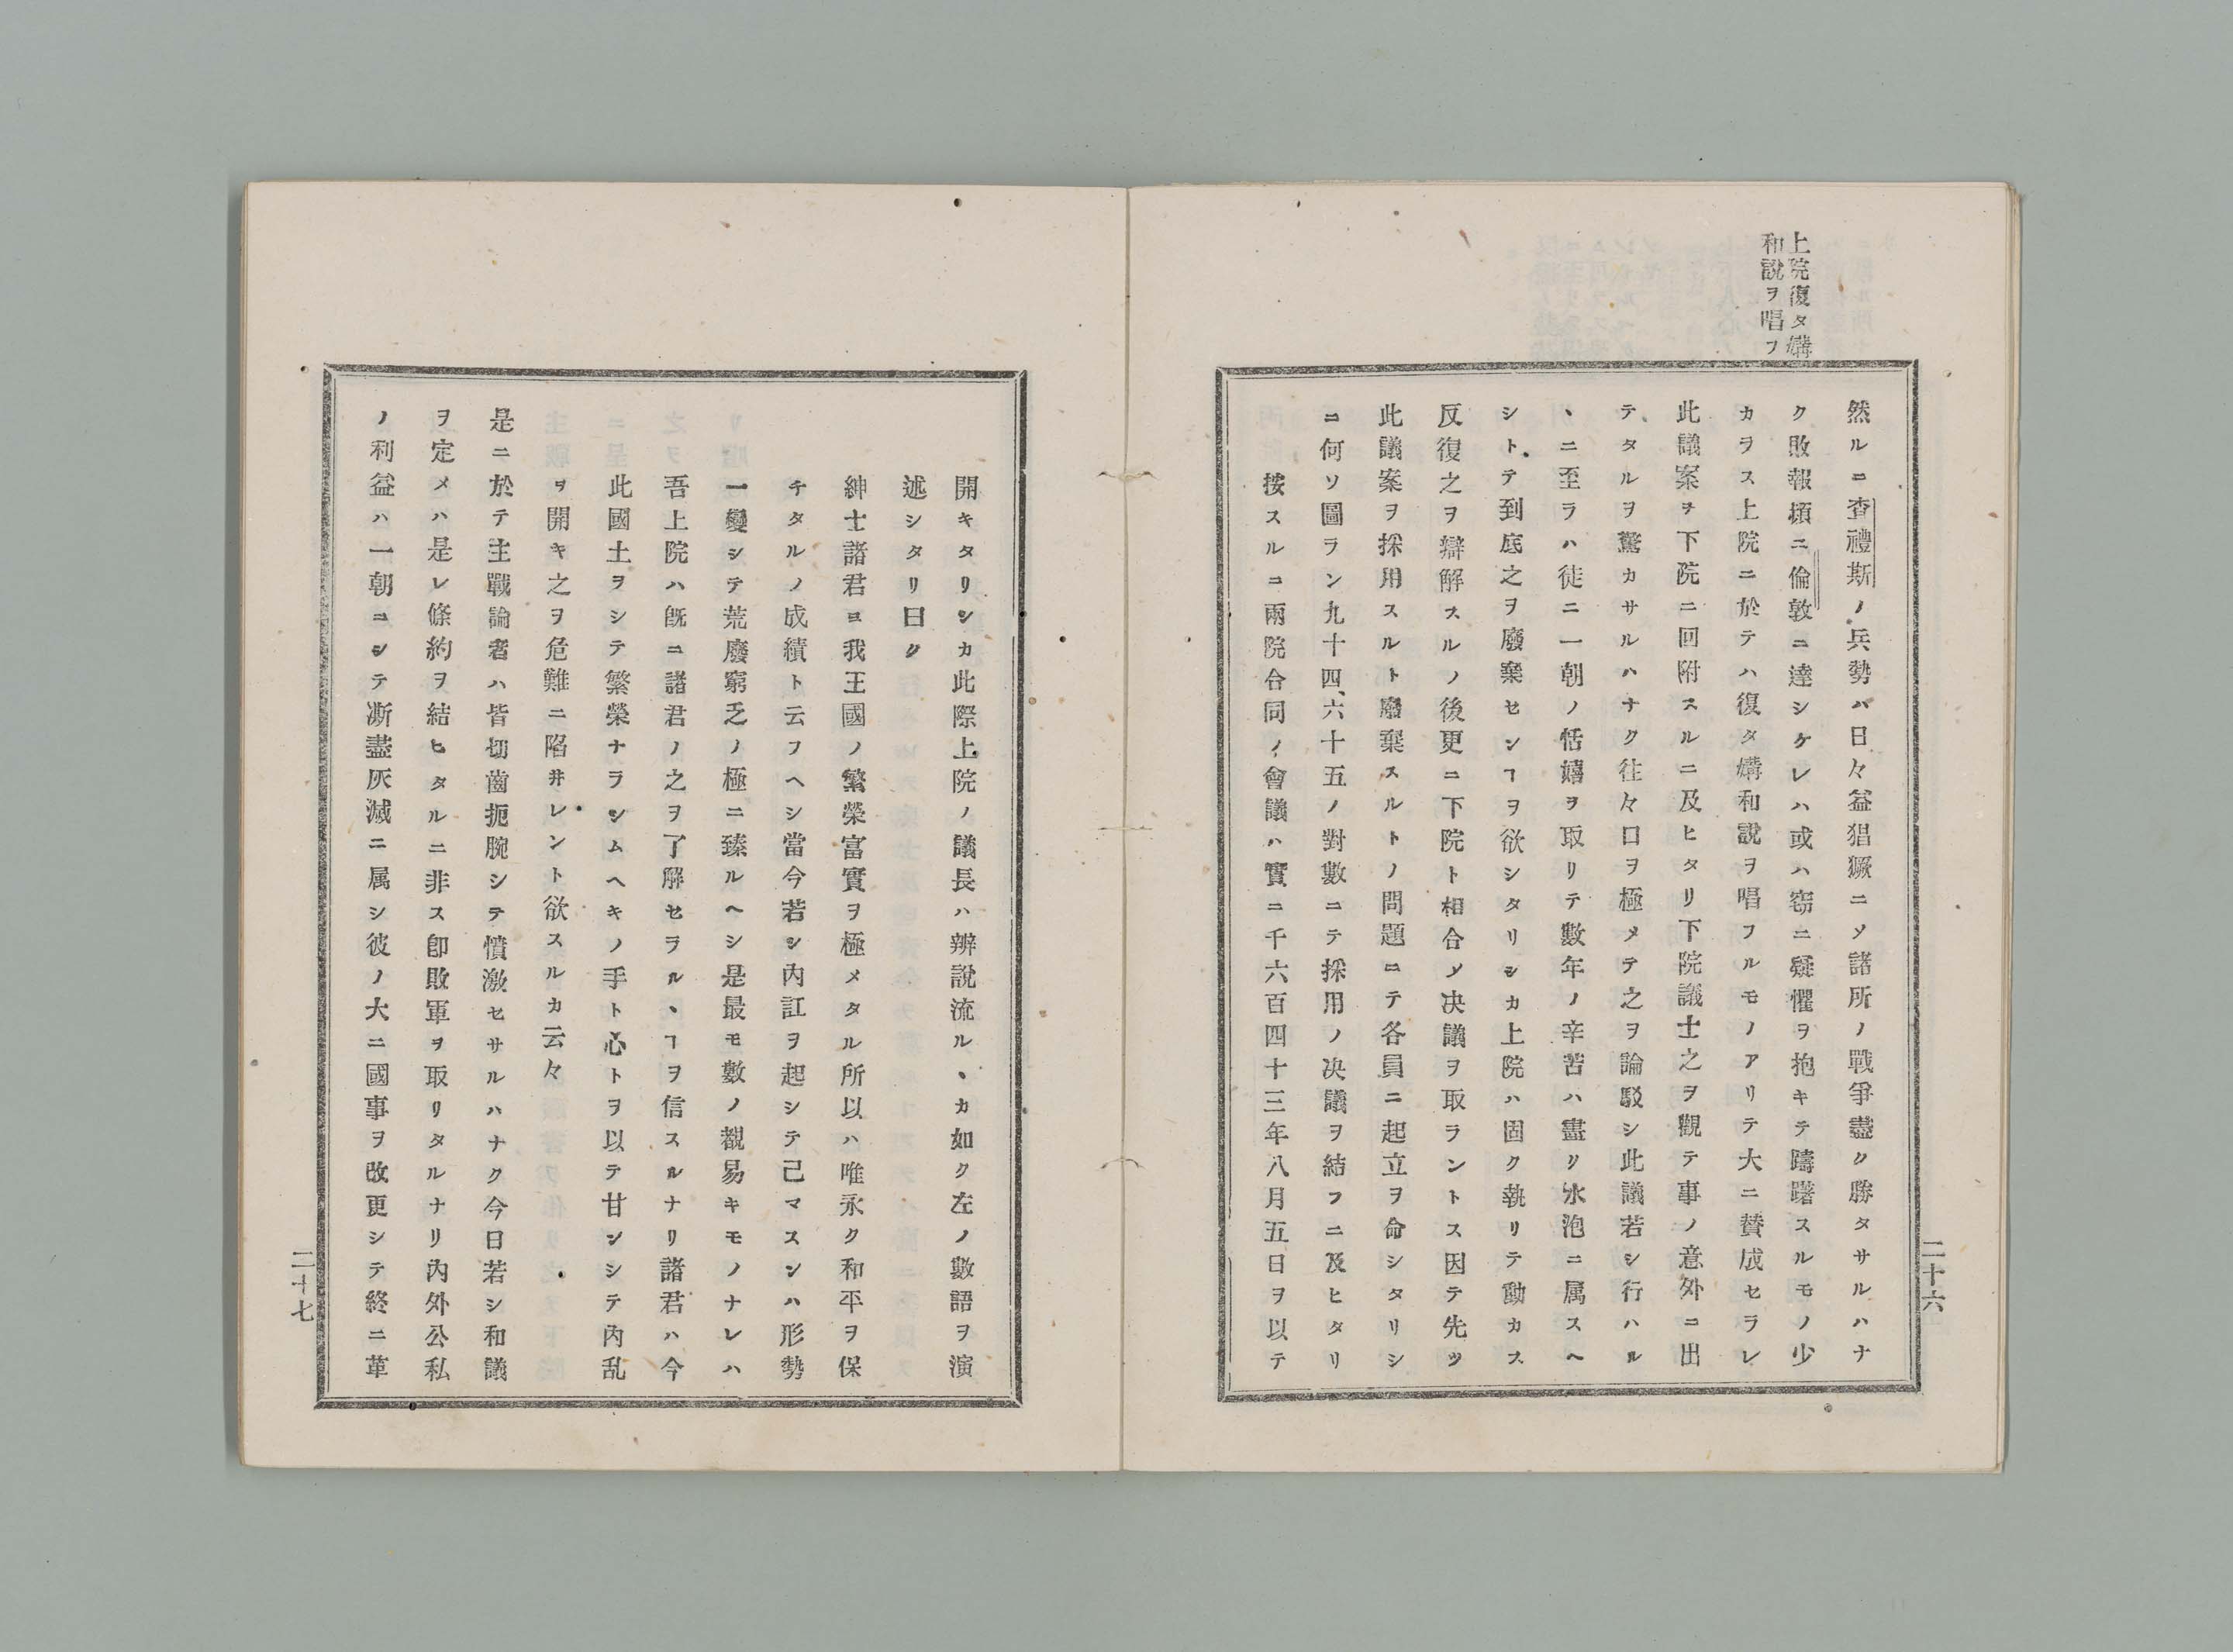 上院復タ媾
和說ヲ唱フ
然ルニ査禮斯ノ兵勢ハ日々益猖獗ニソ諸所ノ戰爭盡ク勝タサルハナ
ク敗報頻ニ倫敦ニ達シケレハ或ハ窃ニ疑懼ヲ抱キテ躊躇スルモノ少
カヲス上院ニ於テハ復タ媾和說ヲ唱フルモノアリテ大ニ賛成セラレ
此議案ヲ下院ニ回附スルニ及ヒタリ下院議士之ヲ觀テ事ノ意外ニ出
テタルヲ驚カサルハナク往々口ヲ極メテ之ヲ論駁シ此議若シ行ハル
ヽニ至ラハ徒ニ一朝ノ恬嬉ヲ取リテ數年ノ辛苦ハ盡ク水泡ニ属スヘ
シトテ到底之ヲ廢棄センヿヲ欲シタリシカ上院ハ固ク執リテ動カス
反復之ヲ辯解スルノ後更ニ下院ト相合ソ决議ヲ取ラントス因テ先ツ
此議案ヲ採用スルト廢棄スルトノ問題ニテ各員ニ起立ヲ命シタリシ
ニ何ソ圖ラン九十四、六十五ノ對數ニテ採用ノ决議ヲ結フニ及ヒタリ
按スルニ兩院合同ノ會議ハ實ニ千六百四十三年八月五日ヲ以テ
二十六
開キタリシカ此際上院ノ議長ハ辨說流ルヽカ如ク左ノ數語ヲ演
述シタリ曰ク
紳士諸君ヨ我王國ノ繁榮富實ヲ極メタル所以ハ唯永ク和平ヲ保
チタルノ成績ト云フヘシ當今若シ內訌ヲ起シテ已マスンハ形勢
一變シテ荒廢窮乏ノ極ニ臻ルヘシ是最モ數ノ覩易キモノナレハ
吾上院ハ旣ニ諸君ノ之ヲ了解セラルヽヿヲ信スルナリ諸君ハ今
此國土ヲシテ繁榮ナラシムヘキノ手ト心トヲ以テ甘ンシテ內乱
ヲ開キ之ヲ危難ニ陷井レント欲スルカ云々
是ニ於テ主戰論者ハ皆切齒扼腕シテ憤激セサルハナク今日若シ和議
ヲ定メハ是レ條約ヲ結ヒタルニ非ス卽敗軍ヲ取リタルナリ內外公私
ノ利益ハ一朝ニシテ澌盡灰滅ニ属シ彼ノ大ニ國事ヲ改更シテ終ニ革
二十七